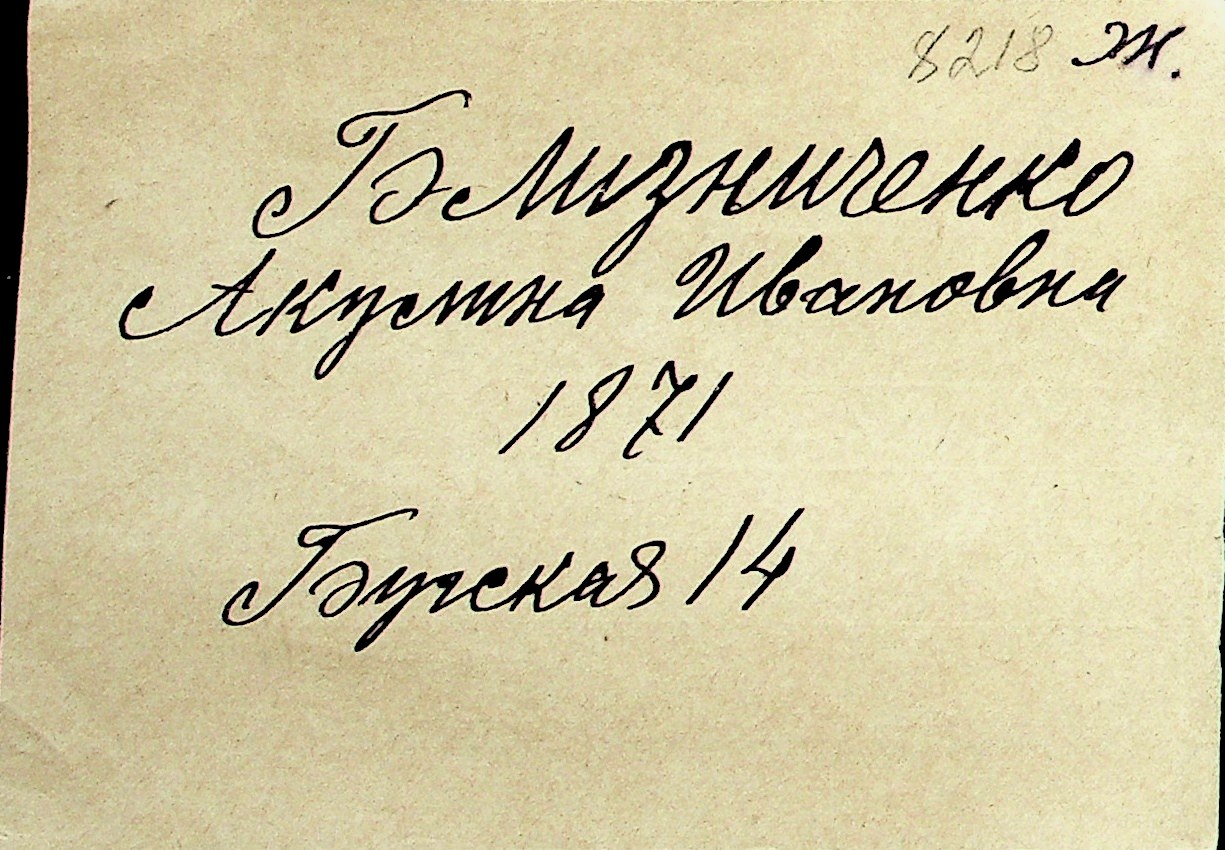 8218 Ж.
Близниченко
Акулина Ивановна
1871
Бугская 14